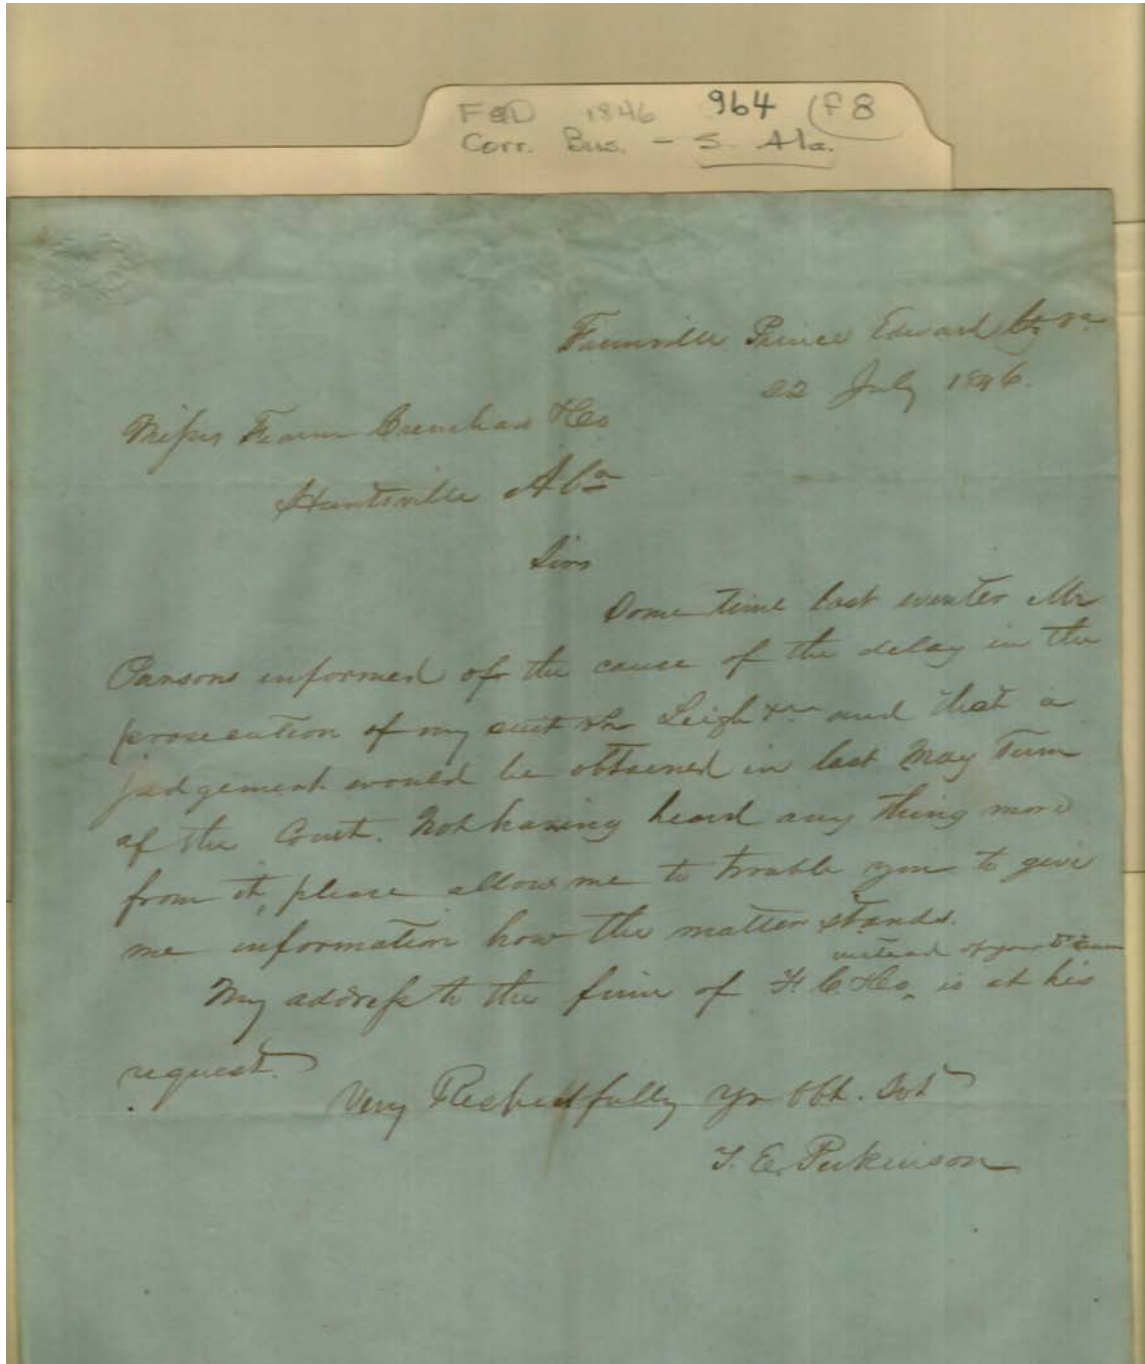 F&D 1846 964 (F 8
Corr. Bus. - S. Ala.
Farmville Prince Edward Cty Va
22 July 1846.
Messrs Fearn Crenshaw & Co
Huntsville Ala
Sirs
Some time last winter Mr
Parsons informed of the cause of the delay in the
prosecution of my suit vs Leigh and that a
judgement would be obtained in last May Term
of the Court. Not having heard any thing more
from it, please allow me to trouble you to give
me information how the matter stands.
instead of your
My address to the firm of F. C. & Co is at his
request.
Very Respectfully Yr Obt. Svt
T. E. Perkinson